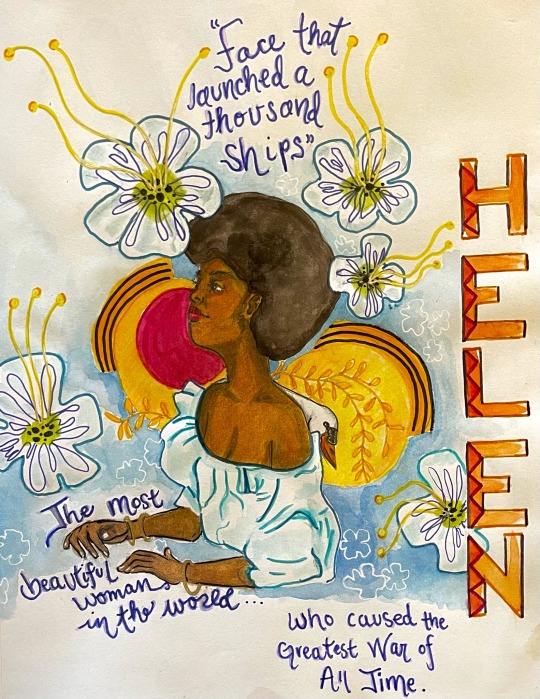 "Face that
launched a
thousand
Ships"
HELEN
The most
beautiful
woman
in the world...
who caused the
Greatest War of
All Time.